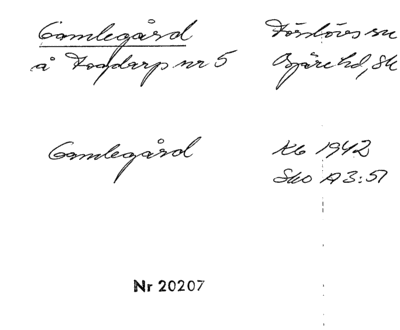 Gamlegård
å Fogdarp nr 5
Förslövs sn
Bjäre hd, Sk
Gamlegård
KG 1942
Sko A3:51
Nr 20207